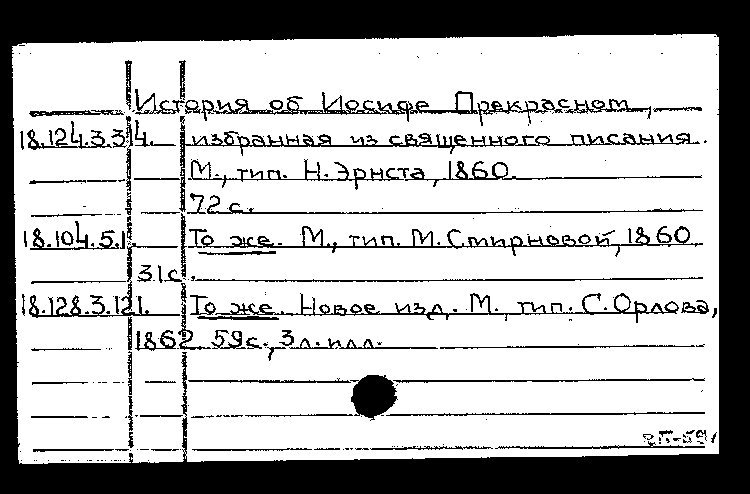 История об Иосифе Прекрасном,
18.124.3.34. избранная из священного писания.
М., тип. Н. Эрнста, 1860.
72 с.
18.104.5.1. То же. М., тип. М. Смирновой, 1860
31 с.
18.128.3.121. То же. Новое изд. М., тип. С. Орлова,
1862. 59 с., 3 л. илл.